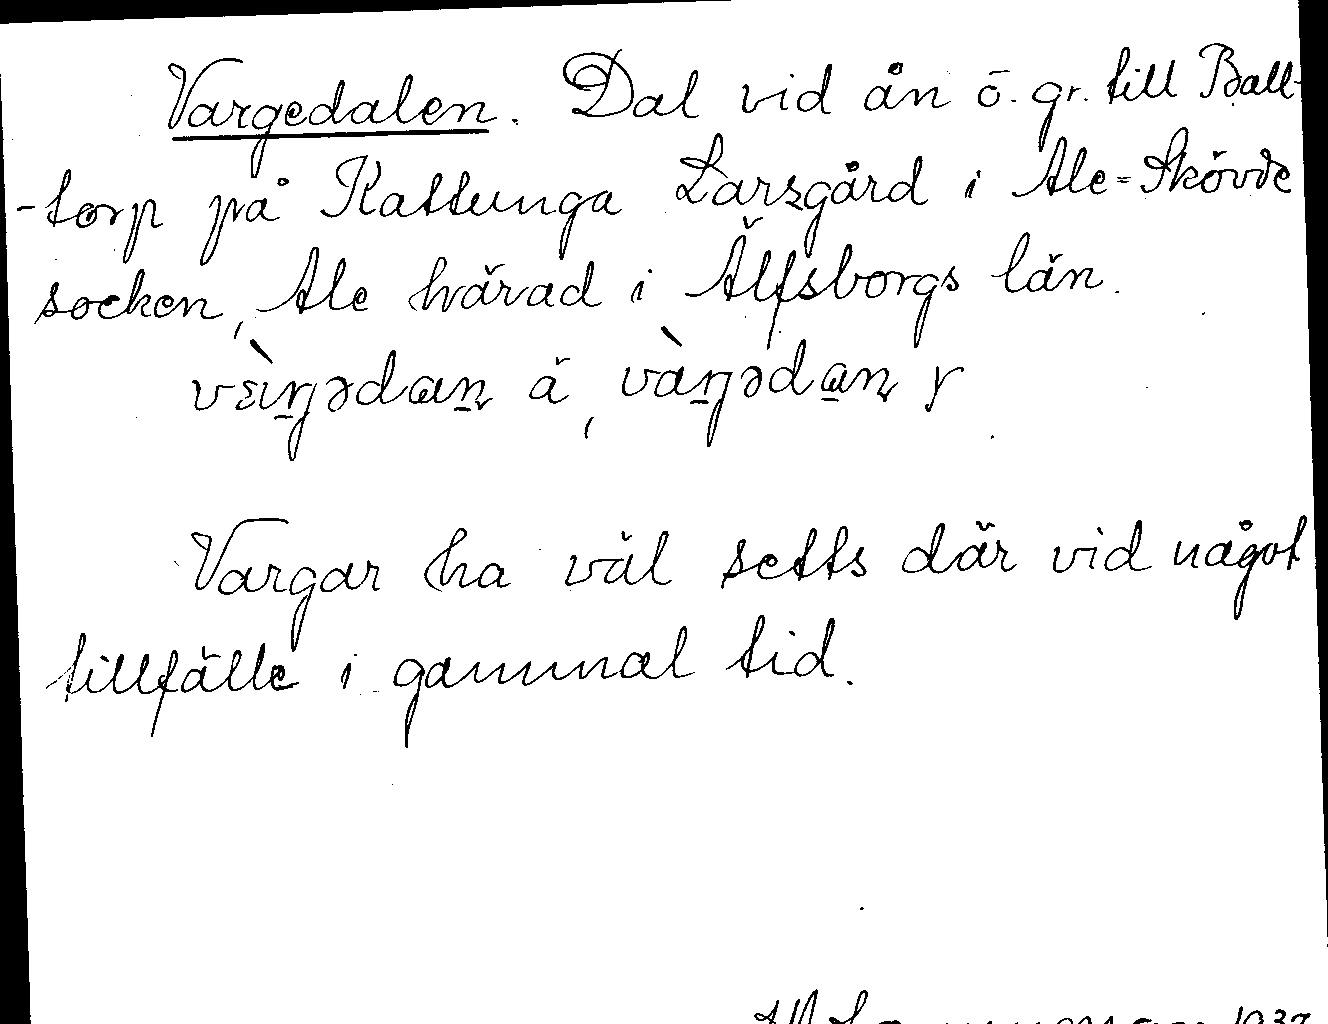 Vargedalen. Dal vid ån ö. gr. till Ball-
-torp på Kattunga Larsgård i Ale-Skövde
socken, Ale härad i Älfsborgs län.
Vargar ha väl setts där vid något
tillfälle i gammal tid.
1937